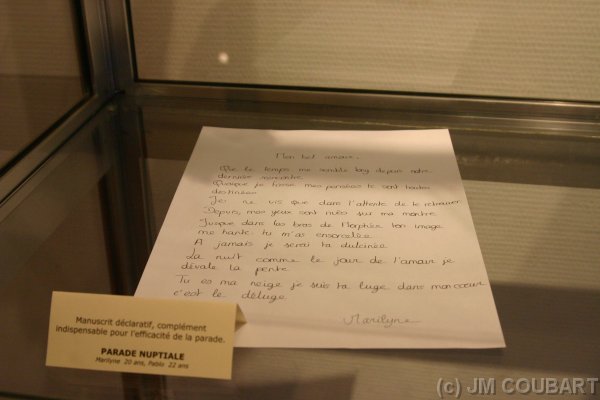 Mon bel amour.
Que le temps me semble long depuis notre
dernière rencontre
Quoique je fasse mes pensées te sont toutes
destinées
Je ne vis que dans l'attente de te retrouver
Depuis, mes yeux sont rivés sur ma montre
Jusque dans les bras de Morphée ton image
me hante: tu m'as ensorcelée
A jamais je serai ta dulcinée
La nuit comme le jour de l'amour je
dévale la pente
Tu es ma neige je suis ta luge dans mon cœur
c'est le déluge
Marilyne
Manuscrit déclaratif, complément
indispensable pour l'efficacité de la parade.
PARADE NUPTIALE
Marilyne 20 ans, Pablo 22 ans
(c) JM COUBART